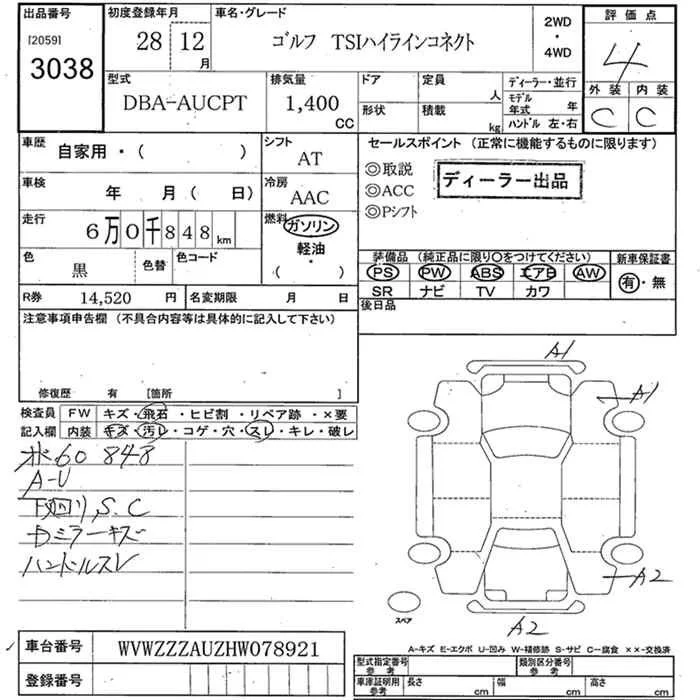 出品番号
[2059]
3038
初度登録年月
28 12 月
車名・グレード
ゴルフ TSIハイラインコネクト
2WD
・
4WD
評価点
4
外装 内装
C C
型式
DBA-AUCPT
排気量
1,400 CC
ドア
形状
定員 人
積載 kg
ディーラー・並行
モデル年式 年
ハンドル 左・右
車歴
自家用 ・ ( )
シフト
AT
車検
年 月( 日)
冷房
AAC
走行
6万0千848km
燃料
ガソリン
軽油
( ・ )
色
黒
色替
色コード
R券 14,520 円
名変期限 月 日
セールスポイント (正常に機能するものに限ります)
◎取説
◎ACC
◎Pシフト
ディーラー出品
装備品 (純正品に限り〇をつけてください)
PS PW ABS エアB AW
SR ナビ TV カワ
新車保証書
有・無
後日品
注意事項申告欄 (不具合内容等は具体的に記入して下さい)
修復歴 有 [箇所 ]
検査員記入欄
FW キズ・飛石・ヒビ割・リペア跡・×要
内装 キズ・汚レ・コゲ・穴・スレ・キレ・破レ
60 848
A-U
下回り、S、C
Dミラーキズ
ハンドルスレ
A1
A1
A2
A2
スペア
A-キズ E-エクボ U-凹み W-補修跡 S-サビ C-腐食 ××-交換済
車台番号 WVWZZZAUZHW078921
登録番号
型式指定番号 参考
類別区分番号 参考
車庫証明用 参考
長さ cm
幅 cm
高さ cm